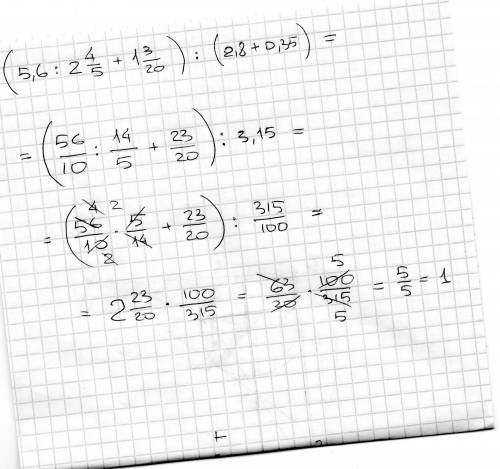 (5,6 : 2 4/5 + 1 3/20) : (2,8 + 0,35) =
= (56/10 : 14/5 + 23/20) : 3,15 =
= (56/10 · 5/14 + 23/20) : 315/100 = 4 2 2
= 2 23/20 · 100/315 = 63/20 · 100/315 = 5/5 = 1 5 5